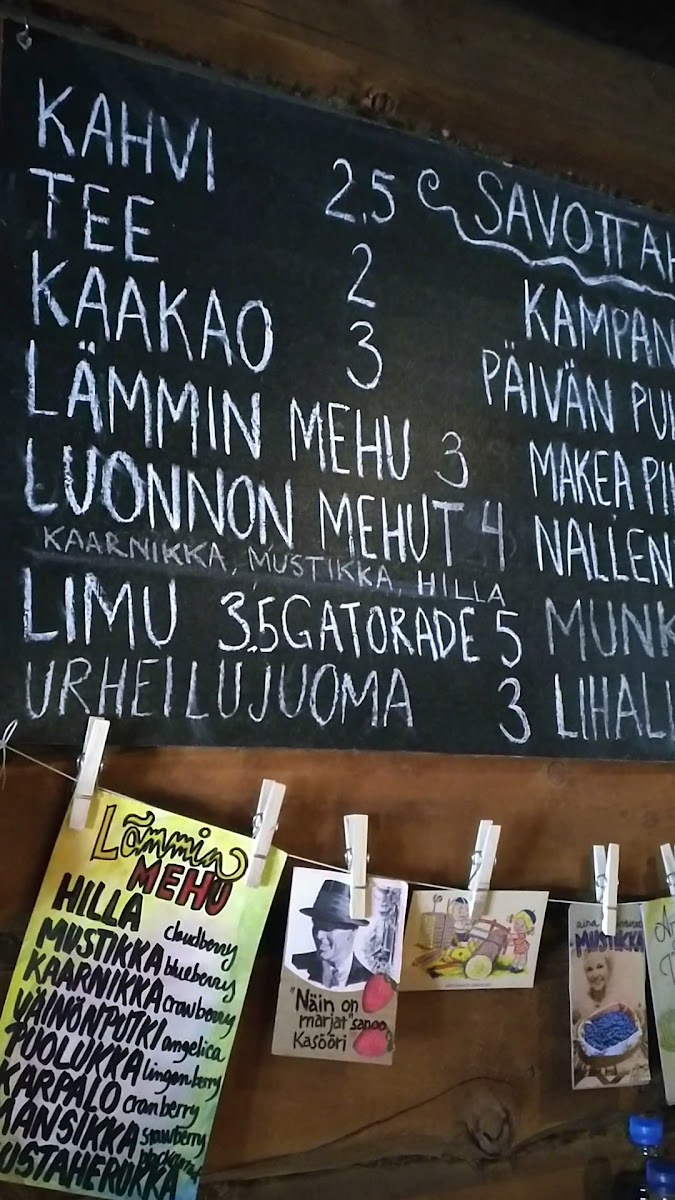 KAHVI 2,5
TEE 2
KAAKAO 3
LÄMMIN MEHU 3
LUONNON MEHUT 4
KAARNIKKA, MUSTIKKA, HILLA
LIMU 3.5 GATORADE 5
URHEILUJUOMA 3
SAVOTTAK
KAMPAN
PÄIVÄN PU
MAKEA PI
NALLEN
MUNK
LIHALI
Lämmin
MEHU
HILLA cloudberry
MUSTIKKA blueberry
KAARNIKKA crawberry
VÄINÖNPUTKI angelica
PUOLUKKA lingonberry
KARPALO cranberry
MANSIKKA strawberry
USTAHERUKKA
"Näin on
marjat" sanoo
Kasööri
aina
MUSTIKKA